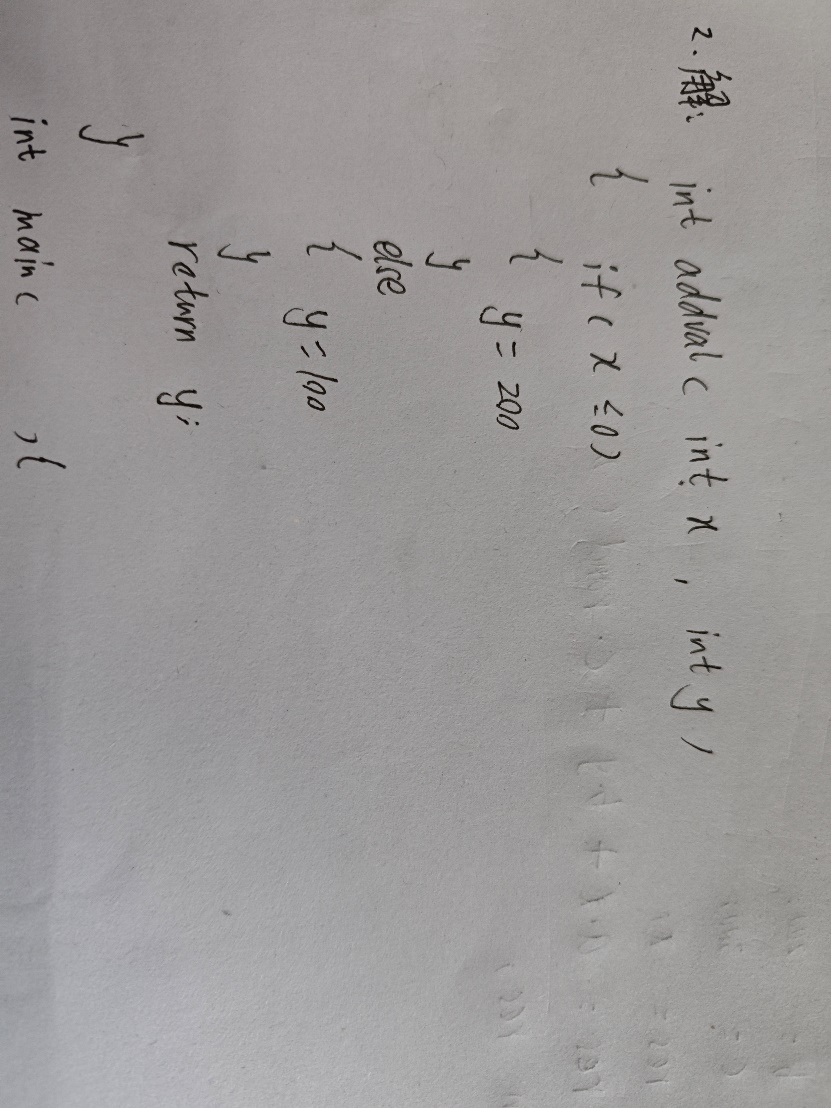 2. 解: int addval ( int x , int y )
{ if ( x ≤ 0 )
{ y = 200
}
else
{ y = 100
}
return y;
}
int main ( ) {